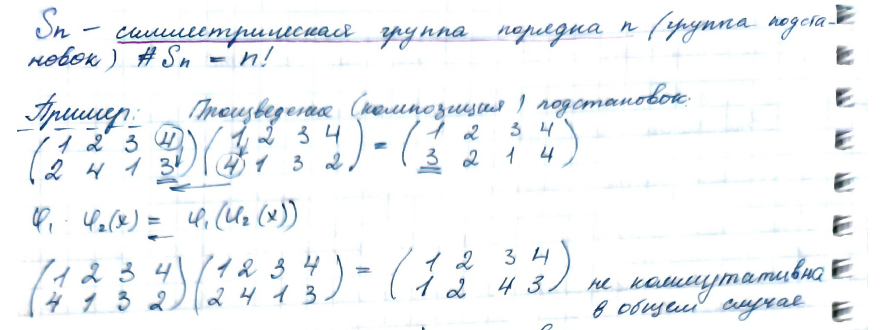 Sn – симметрическая группа порядка n (группа подста-
новок) # Sn = n!
Пример: Произведение (композиция) подстановок:
(1 2 3 4 / 2 4 1 3)(1 2 3 4 / 4 1 3 2) = (1 2 3 4 / 3 2 1 4)
φ₁ · φ₂(x) = φ₁(φ₂(x))
(1 2 3 4 / 4 1 3 2)(1 2 3 4 / 2 4 1 3) = (1 2 3 4 / 1 2 4 3) не коммутативна
в общем случае